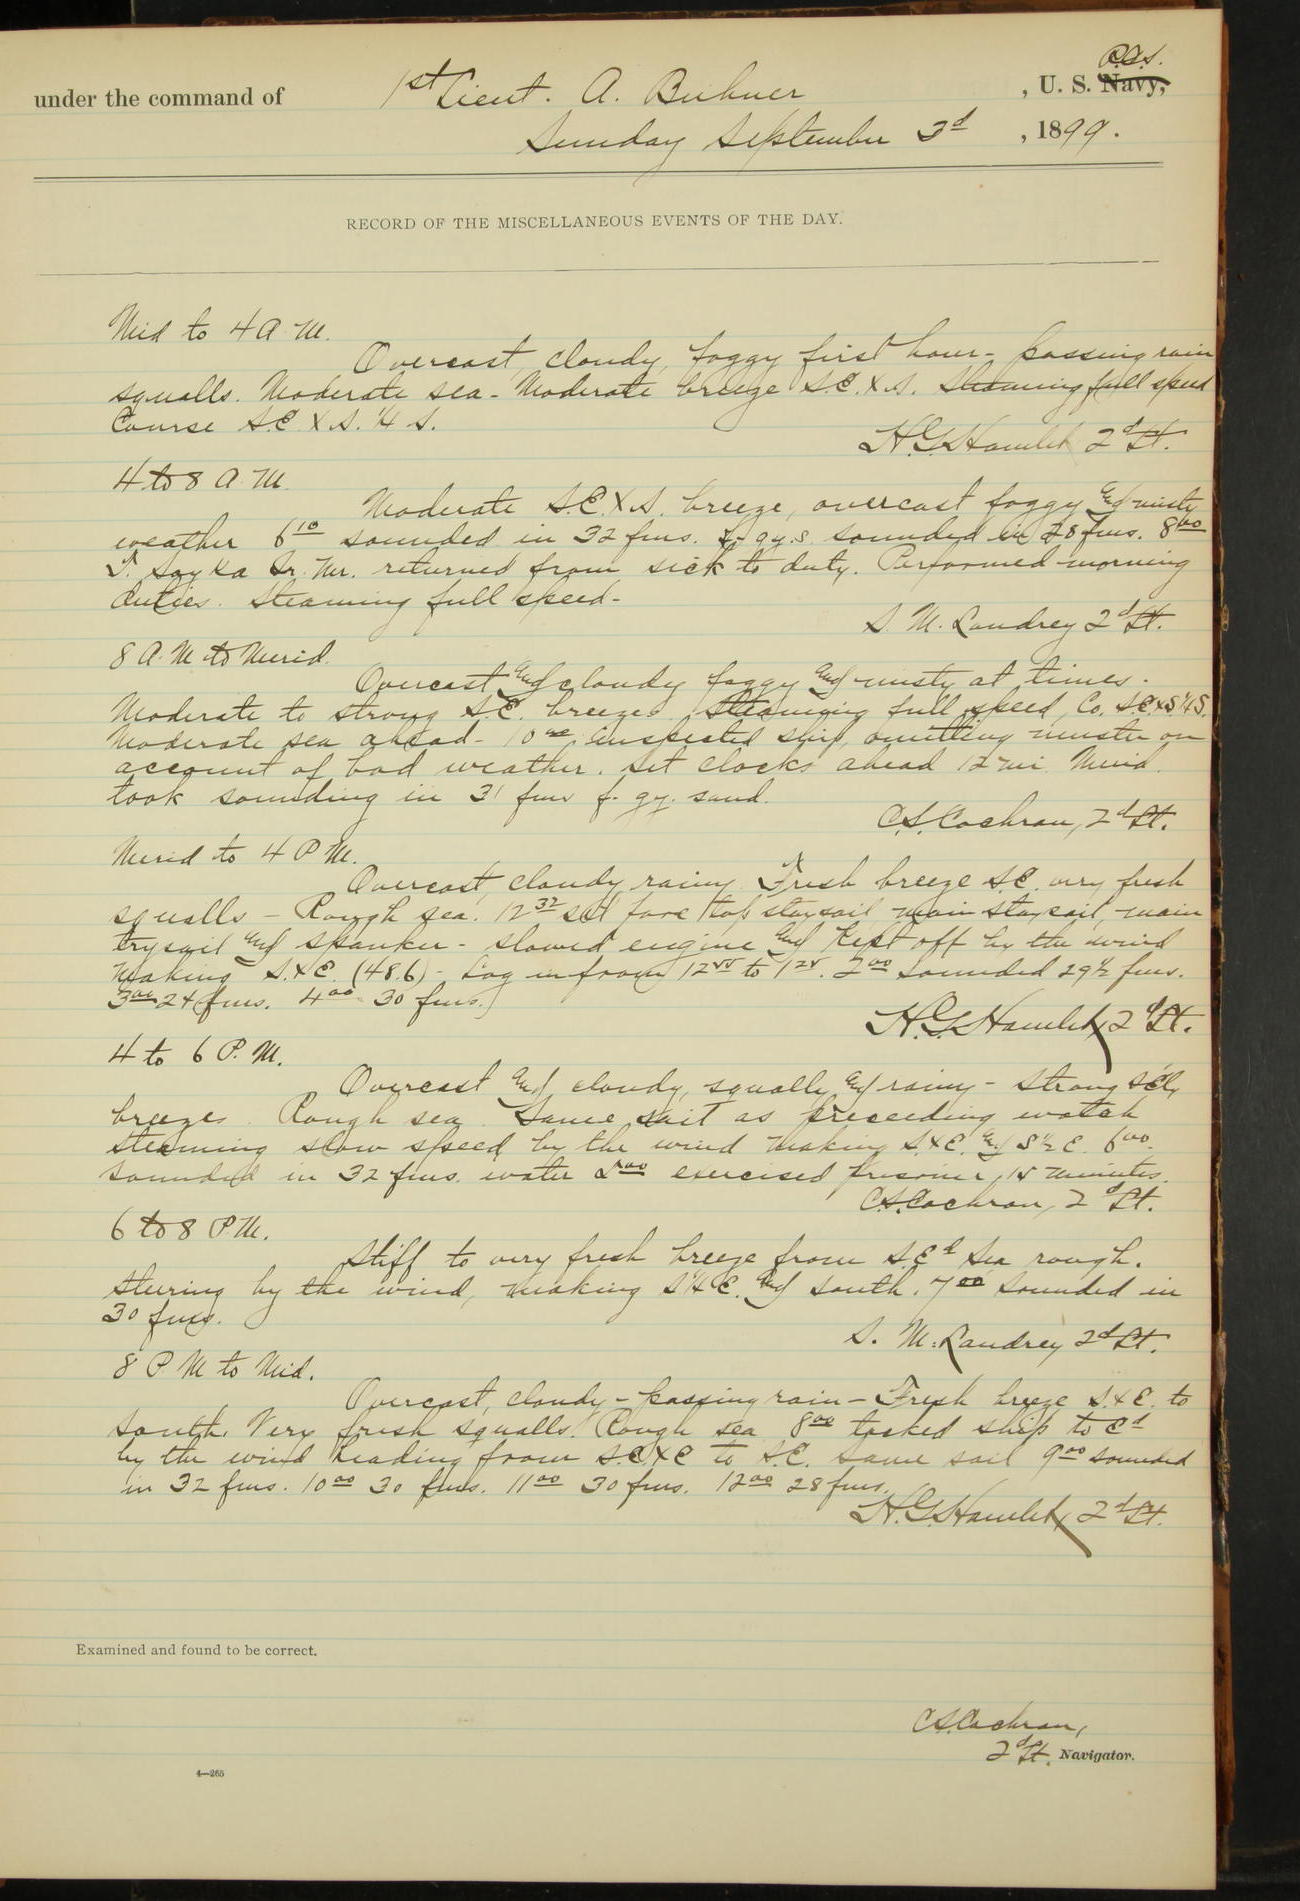 under the command of 1st Lieut. A. Buhner, U. S. Navy, R.C.S.
Sunday September 3d, 1899.
RECORD OF THE MISCELLANEOUS EVENTS OF THE DAY.
Mid to 4 A. M.
Overcast, cloudy, foggy first hour - passing rain
squalls. Moderate sea - Moderate breeze S.E. x S. Steaming full speed
Course S.E. x S. ¼ S.
H.G. Hamlet 2d Lt.
4 to 8 A M
Moderate S.E. x S. breeze, overcast foggy and misty
weather 6 10 sounded in 32 fms. f. gy. s. sounded in 28 fms. 8 00
returned from sick to duty. Performed morning
duties. Steaming full speed -
S. M. Landrey 2d Lt.
8 A. M to Merid.
Overcast and cloudy foggy and misty at times.
Moderate to strong S.E. breezes. Steaming full speed, Co. S.E. x S. ¼ S.
Moderate sea ahead - 10 inspected ship, omitting muster on
account of bad weather. Set clocks ahead 12 mi. Merid.
took sounding in 31 fms f. gy. sand.
C.S. Cochran, 2d Lt.
Merid to 4 P M.
Overcast, cloudy, rainy. Fresh breeze S.E. very fresh
squalls - Rough sea. 12 32 set fore top staysail main staysail, main
trysail and spanker - slowed engine and kept off by the wind
making S. x E. (48.6) - Log in from 12 to 1. 2 00 sounded 29½ fms.
3 00 24 fms. 4 00 30 fms.
H.G. Hamlet, 2d Lt.
4 to 6 P. M.
Overcast and cloudy, squally and rainy - strong S'Ely
breezes. Rough sea. Same sail as preceeding watch
steaming slow speed by the wind making S. x E. and S ½ E. 6 00
sounded in 32 fms. water 5 00 exercised prisoner 15 minutes.
C.S. Cochran, 2d Lt.
6 to 8 P M.
Stiff to very fresh breeze from S.Ed Sea rough.
Steering by the wind, making S ¼ E. and South. 7 00 sounded in
30 fms.
S. M. Landrey 2d Lt.
8 P M to Mid.
Overcast, cloudy - passing rain - Fresh breeze S. x E. to
South. Very fresh squalls. Rough sea 8 00 tacked ship to Ed
by the wind heading from S.E. x E to S.E. Same sail 9 00 sounded
in 32 fms. 10 00 30 fms. 11 00 30 fms. 12 00 28 fms.
H.G. Hamlet, 2d Lt.
Examined and found to be correct.
C.S. Cochran,
2d Lt. Navigator.
4—265